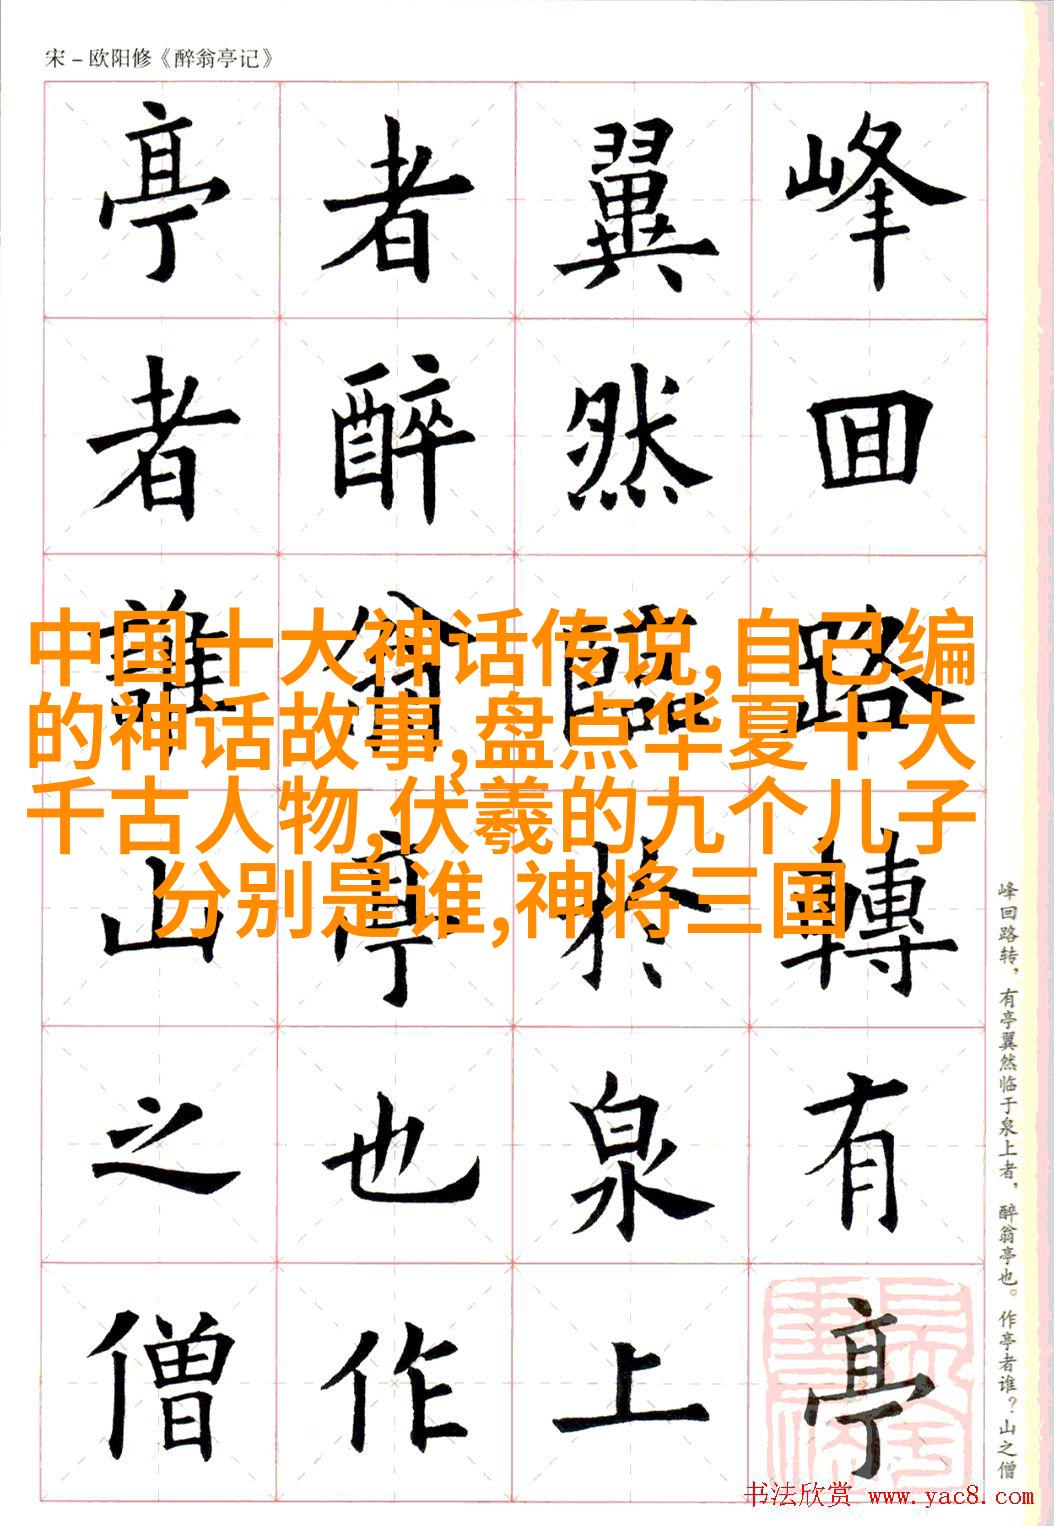 宋－欧阳修《醉翁亭记》
峰囬路轉有亭
翼然臨於泉上
者醉翁亭也作
亭者誰山之僧
中国十大神话传说,自己编
的神话故事,盘点华夏十大
千古人物,伏羲的九个儿子
分别是谁,神将三国
峰回路转，有亭翼然临于泉上者，醉翁亭也。作亭者谁？山之僧
书法欣赏 www.yac8.com